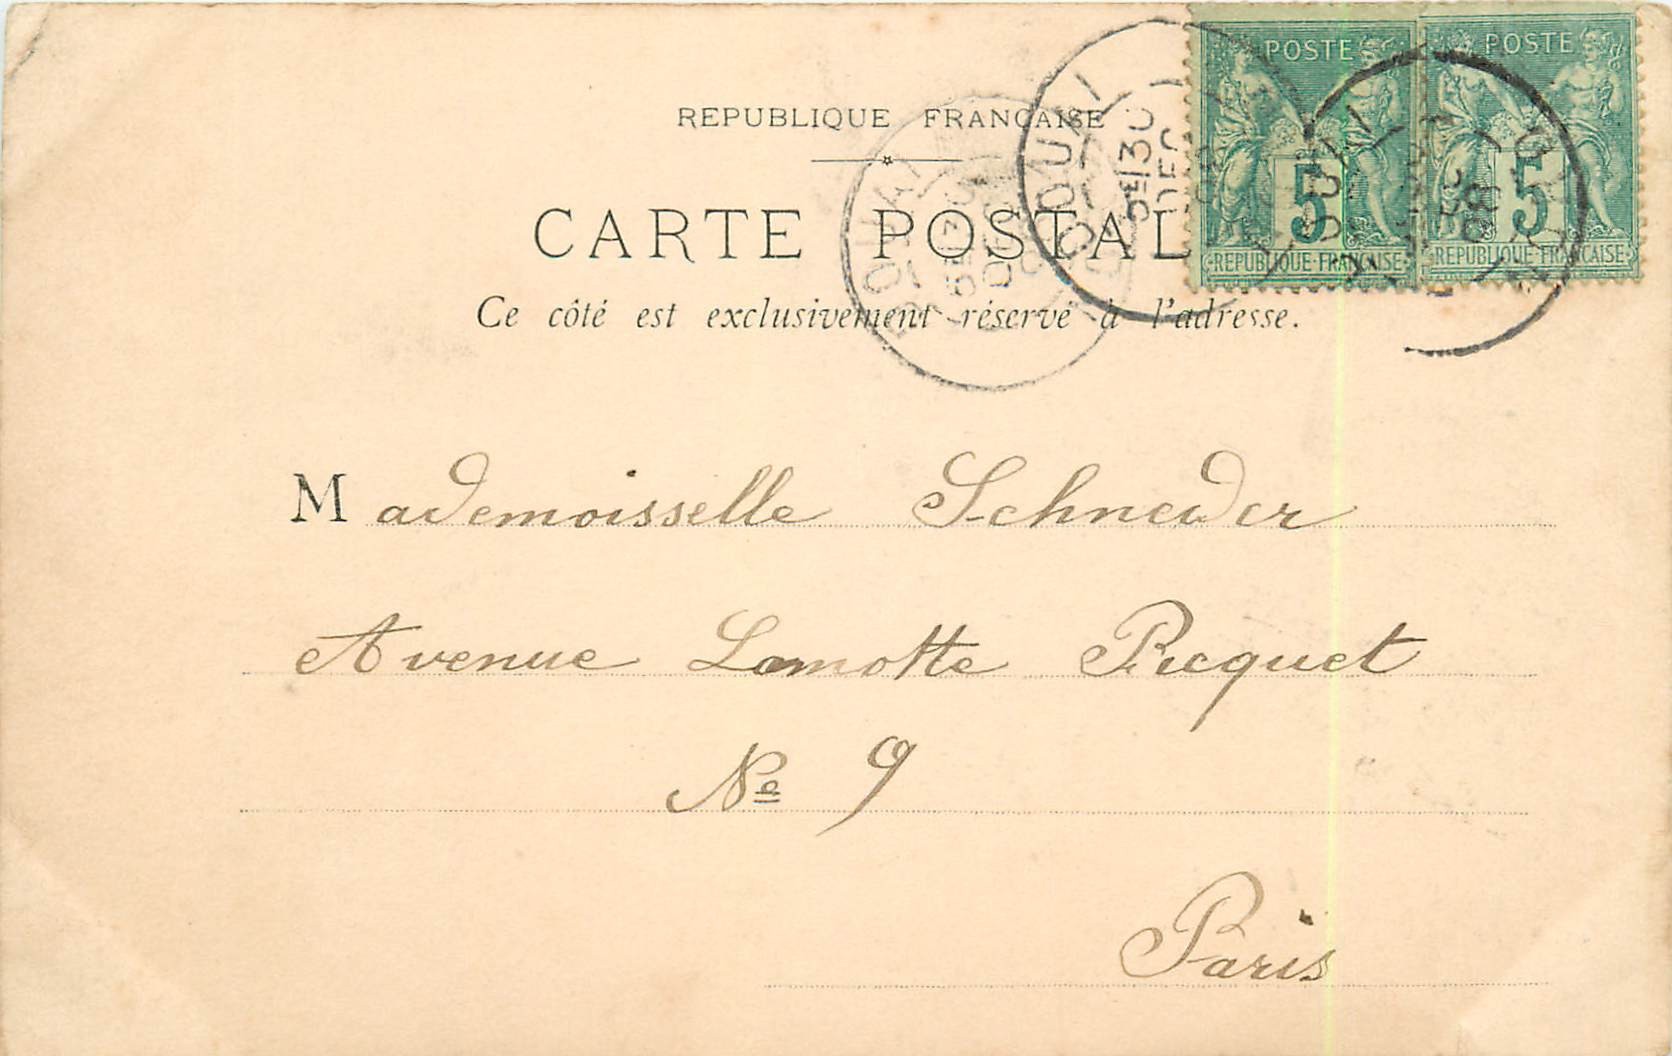 REPUBLIQUE FRANÇAISE
CARTE POSTAL
Ce côté est exclusivement réservé à l'adresse.
POSTE
5
REPUBLIQUE FRANÇAISE
POSTE
5
REPUBLIQUE FRANÇAISE
DOUAI
5E 30
DEC
98
Mademoisselle Schneider
Avenue Lamotte Picquet
No 9
Paris